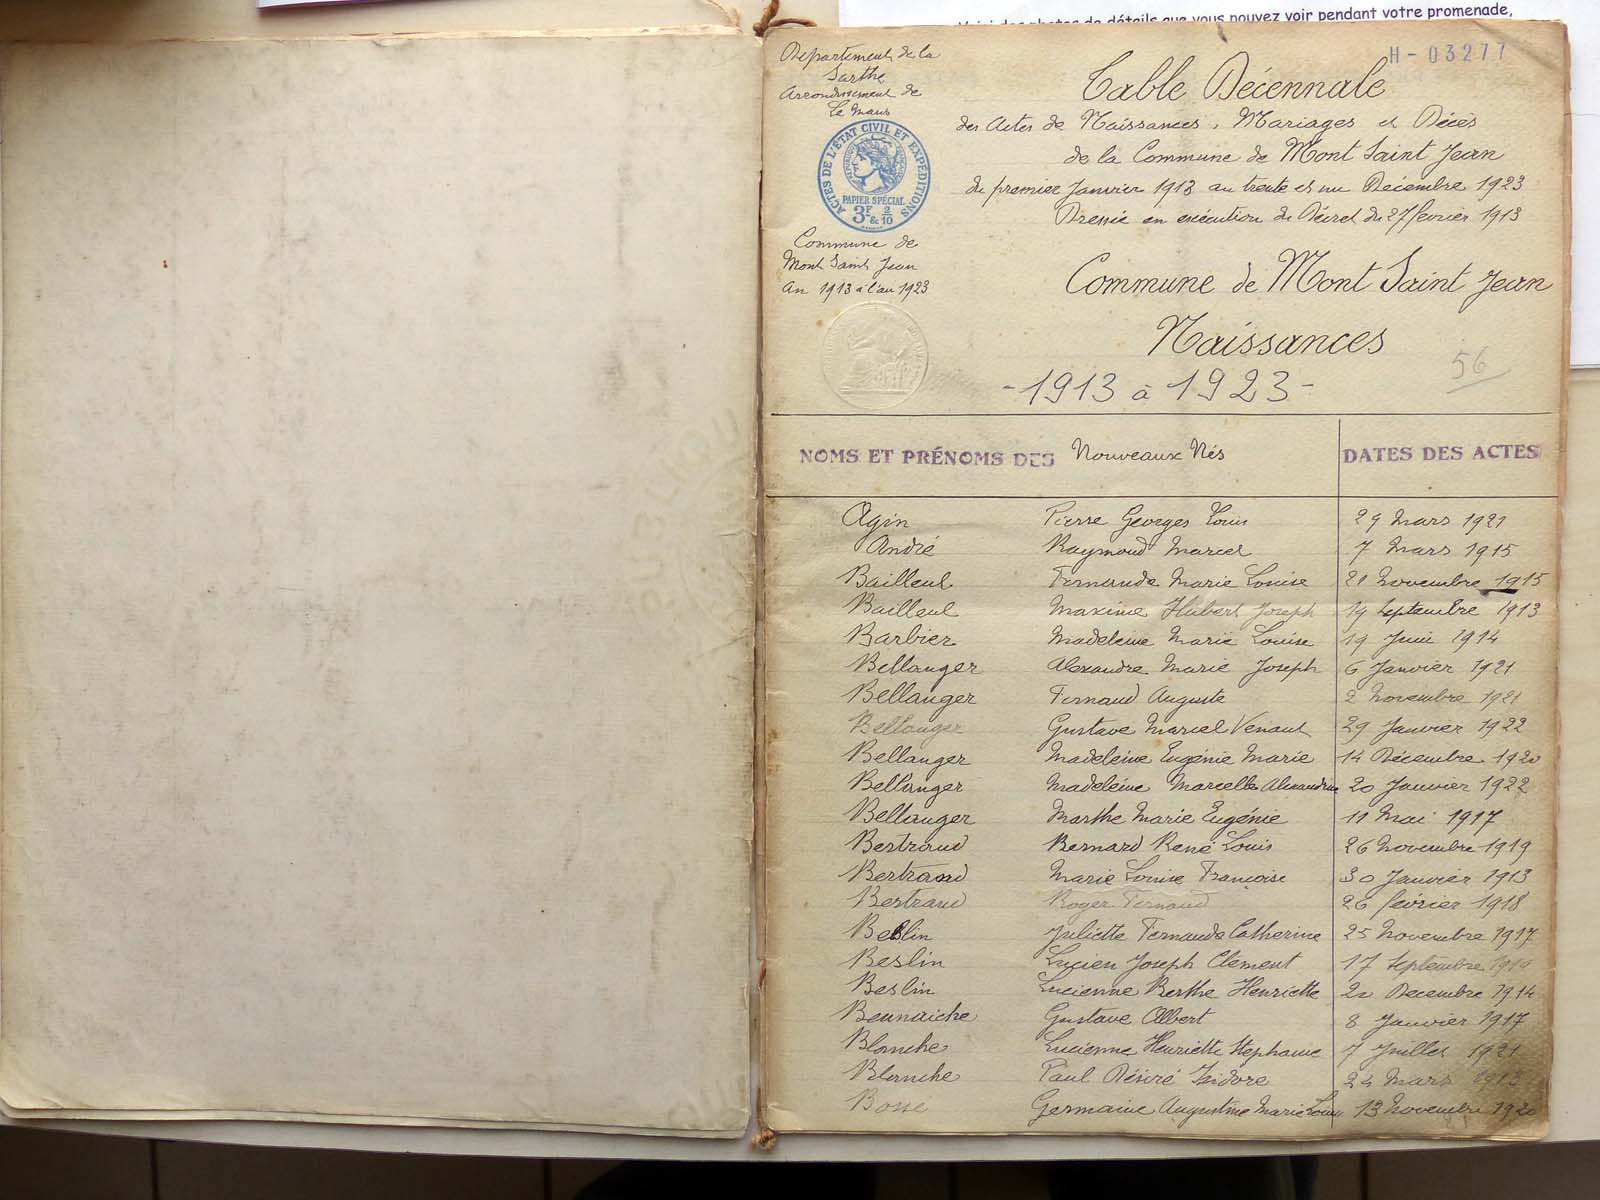 Voici des photos de détails que vous pouvez voir pendant votre promenade,
H-03277
Département de la
Sarthe
Arrondissement de
Le Mans
ACTES DE L'ÉTAT CIVIL ET EXPÉDITIONS
RÉPUBLIQUE FRANÇAISE
PAPIER SPÉCIAL
3F & 2/10
Commune de
Mont Saint Jean
An 1913 à l'an 1923
Table Décennale
des Actes de Naissances, Mariages et Décès
de la Commune de Mont Saint Jean
du premier Janvier 1913 au trente et un Décembre 1923
Dressée en exécution du Décret du 27 février 1913
Commune de Mont Saint Jean
Naissances
56
- 1913 à 1923 -
NOMS ET PRÉNOMS DES Nouveaux Nés DATES DES ACTES
Agin Pierre Georges Louis 29 Mars 1921
André Raymond Marcel 7 Mars 1915
Bailleul Fernande Marie Louise 21 Novembre 1915
Bailleul Maxime Hubert Joseph 19 Septembre 1913
Barbier Madeleine Marie Louise 19 Juin 1914
Bellanger Alexandre Marie Joseph 6 Janvier 1921
Bellanger Fernand Auguste 2 Novembre 1921
Bellanger Gustave Marcel Venant 29 Janvier 1922
Bellanger Madeleine Eugénie Marie 14 Décembre 1920
Bellanger Madeleine Marcelle Alexandrine 20 Janvier 1922
Bellanger Marthe Marie Eugénie 11 Mai 1917
Bertrand Bernard René Louis 26 Novembre 1919
Bertrand Marie Louise Françoise 30 Janvier 1913
Bertrand Roger Fernand 26 février 1918
Beslin Juliette Fernande Catherine 25 Novembre 1917
Beslin Lucien Joseph Clement 17 Septembre
Beslin Lucienne Berthe Henriette Decembre 1914
Beunaiche Gustave Albert 8 Janvier 1917
Blanche Lucienne Henriette Stephanie 7 Juillet 1921
Blanche Paul Désiré Isidore 24 Mars 1913
Bossé Germaine Augustine Marie Louise 13 Novembre 1920